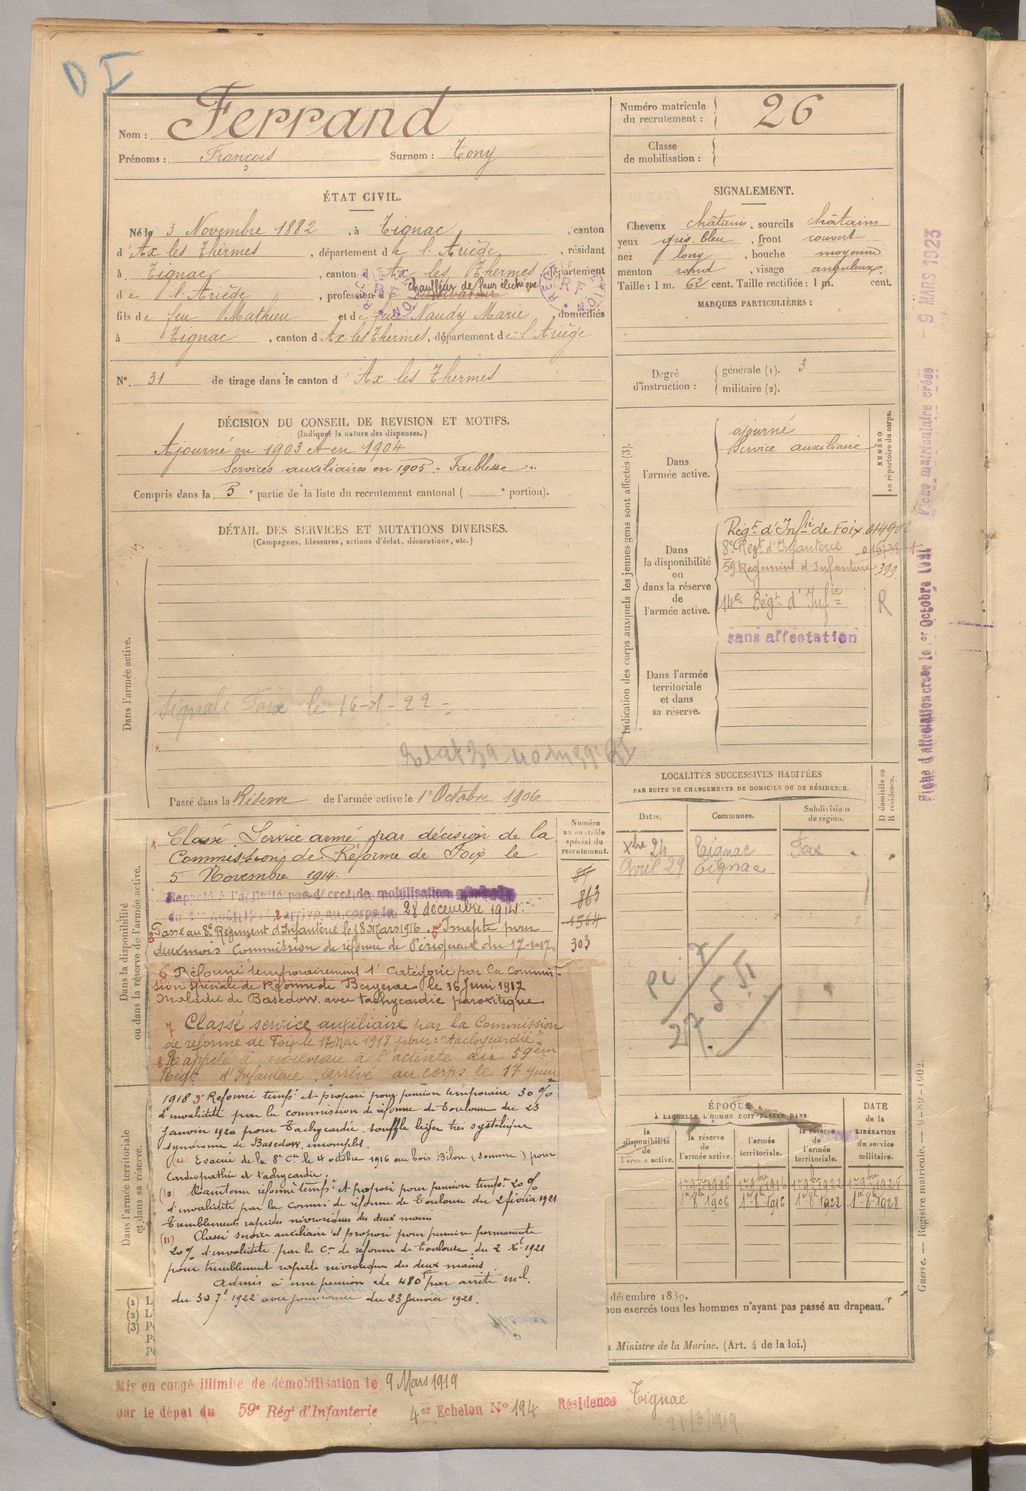 D I
Nom : Ferrand
Prénoms : François Surnom : Tony
Numéro matricule du recrutement : 26
Classe de mobilisation :
ÉTAT CIVIL.
Né le 3 Novembre 1882, à Tignac, canton
d'Ax les Thermes, département de l'Ariège, résidant
à Tignac, canton d'Ax les Thermes, département
Chauffeur de four électrique
de l'Ariège, profession d
fils de feu Mathieu et de Naudy Marie, domiciliés
à Tignac, canton d'Ax les Thermes, département de l'Ariège
N° 31 de tirage dans le canton d'Ax les Thermes
SIGNALEMENT.
Cheveux châtains, sourcils châtains
yeux gris bleu, front couvert
nez long, bouche moyenne
menton rond, visage anguleux.
Taille : 1 m. 62 cent. Taille rectifiée : 1 m. cent.
MARQUES PARTICULIÈRES :
Degré d'instruction : générale (1). 3
militaire (2).
DÉCISION DU CONSEIL DE REVISION ET MOTIFS.
(Indiquer la nature des dispenses.)
Ajourné en 1903 et en 1904
Services auxiliaires en 1905 - Faiblesse
Compris dans la 5e partie de la liste du recrutement cantonal ( e portion).
DÉTAIL DES SERVICES ET MUTATIONS DIVERSES.
(Campagnes, blessures, actions d'éclat, décorations, etc.)
Dans l'armée active.
Signalé Foix le 16-1-22
Passé dans la Réserve de l'armée active le 1er Octobre 1906
Indication des corps auxquels les jeunes gens sont affectés (3).
NUMÉRO au répertoire du corps.
Dans l'armée active.
ajourné
Service auxiliaire
Dans la disponibilité ou dans la réserve de l'armée active.
Régt d'Infie de Foix 01490
8e Régt d'Infanterie
59 Régiment d'Infanterie 399
14e Régt d'Infie R
sans affectation
Dans l'armée territoriale et dans sa réserve.
LOCALITÉS SUCCESSIVES HABITÉES
PAR SUITE DE CHANGEMENTS DE DOMICILE OU DE RÉSIDENCE.
Dates. Communes. Subdivisions de région. D domicile ou R résidence.
Xbre 24 Tignac Foix
Avril 29 Tignac
Numéro au contrôle spécial du recrutement.
863
1564
303
Dans la disponibilité ou dans la réserve de l'armée active.
Classé Service armé par décision de la
Commission de Réforme de Foix le
5 Novembre 1914.
Rappelé à l'activité par décret de mobilisation
arrivé au corps le 28 décembre 1914.
Passé au 8e Régiment d'Infanterie le 18 Mars 1916. 5 Inapte pour
deux mois Commission de réforme de Périgueux du 17-1-17.
6 Réformé temporairement 1e Catégorie par la Commis-
sion spéciale de Réforme de Bergerac le 16 juin 1917
maladie de Basedow avec tachycardie paroxitique
7 Classé service auxiliaire par la Commission
de réforme de Foix le 17 Mai 1918 pour: "Tachycardie"
8 Rappelé à nouveau à l'activité au 59ème
Régt d'Infanterie, arrivé au corps le 17 juin
1918 9 Réformé tempt et proposé pour pension temporaire 30 %
d'invalidité par la commission de réforme de Toulouse du 23
janvier 1920 pour Tachycardie souffle léger très systolique
syndrome de Basedow incomplet.
Evacué de la 8e Cie le 4 octobre 1916 au bois Billon (Somme) pour
Cardiopathie et tachycardie.
(10) Maintenu réformé tempt et proposé pour pension tempre 20 %
d'invalidité par la comon de réforme de Toulouse du 2 février 1921
tremblements rapides névrosiques des deux mains
(11) Classé service auxiliaire et proposé pour pension permanente
20% d'invalidité par la Con de réforme de Toulouse du 2 Xe 1921
pour tremblement rapide névrosique des deux mains.
Admis à une pension de 480f par arrêté mel
du 30 7e 1922 avec jouissance du 23 janvier 1921.
Dans l'armée territoriale et dans sa réserve.
27/5/51
ÉPOQUE
À LAQUELLE L'HOMME DOIT PASSER DANS
la disponibilité de l'armée active.
la réserve de l'armée active.
l'armée territoriale.
la réserve de l'armée territoriale.
DATE de la LIBÉRATION du service militaire.
1er 8bre 1906 1er 8bre 1916 1er 8bre 1922 1er 8bre 1928
(1)
(2)
(3)
décembre 1889.
non exercés tous les hommes n'ayant pas passé au drapeau.
Ministre de la Marine. (Art. 4 de la loi.)
Mis en congé illimité de démobilisation le 9 Mars 1919
par le dépôt du 59e Régt d'Infanterie 4e Echelon N° 194 Résidence Tignac
21/3/1919
Fiche matriculaire créée 9 MARS 1923
Fiche d'affectation créée le 1er Octobre 1921
Guerre. — Registre matricule. — 9-89-1902.